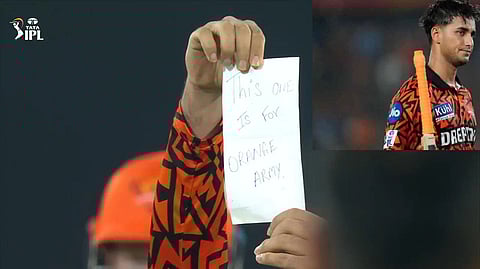 TATA
IPL
THIS ONE
IS FOR
ORANGE
ARMY.
Kuhl
DREAM